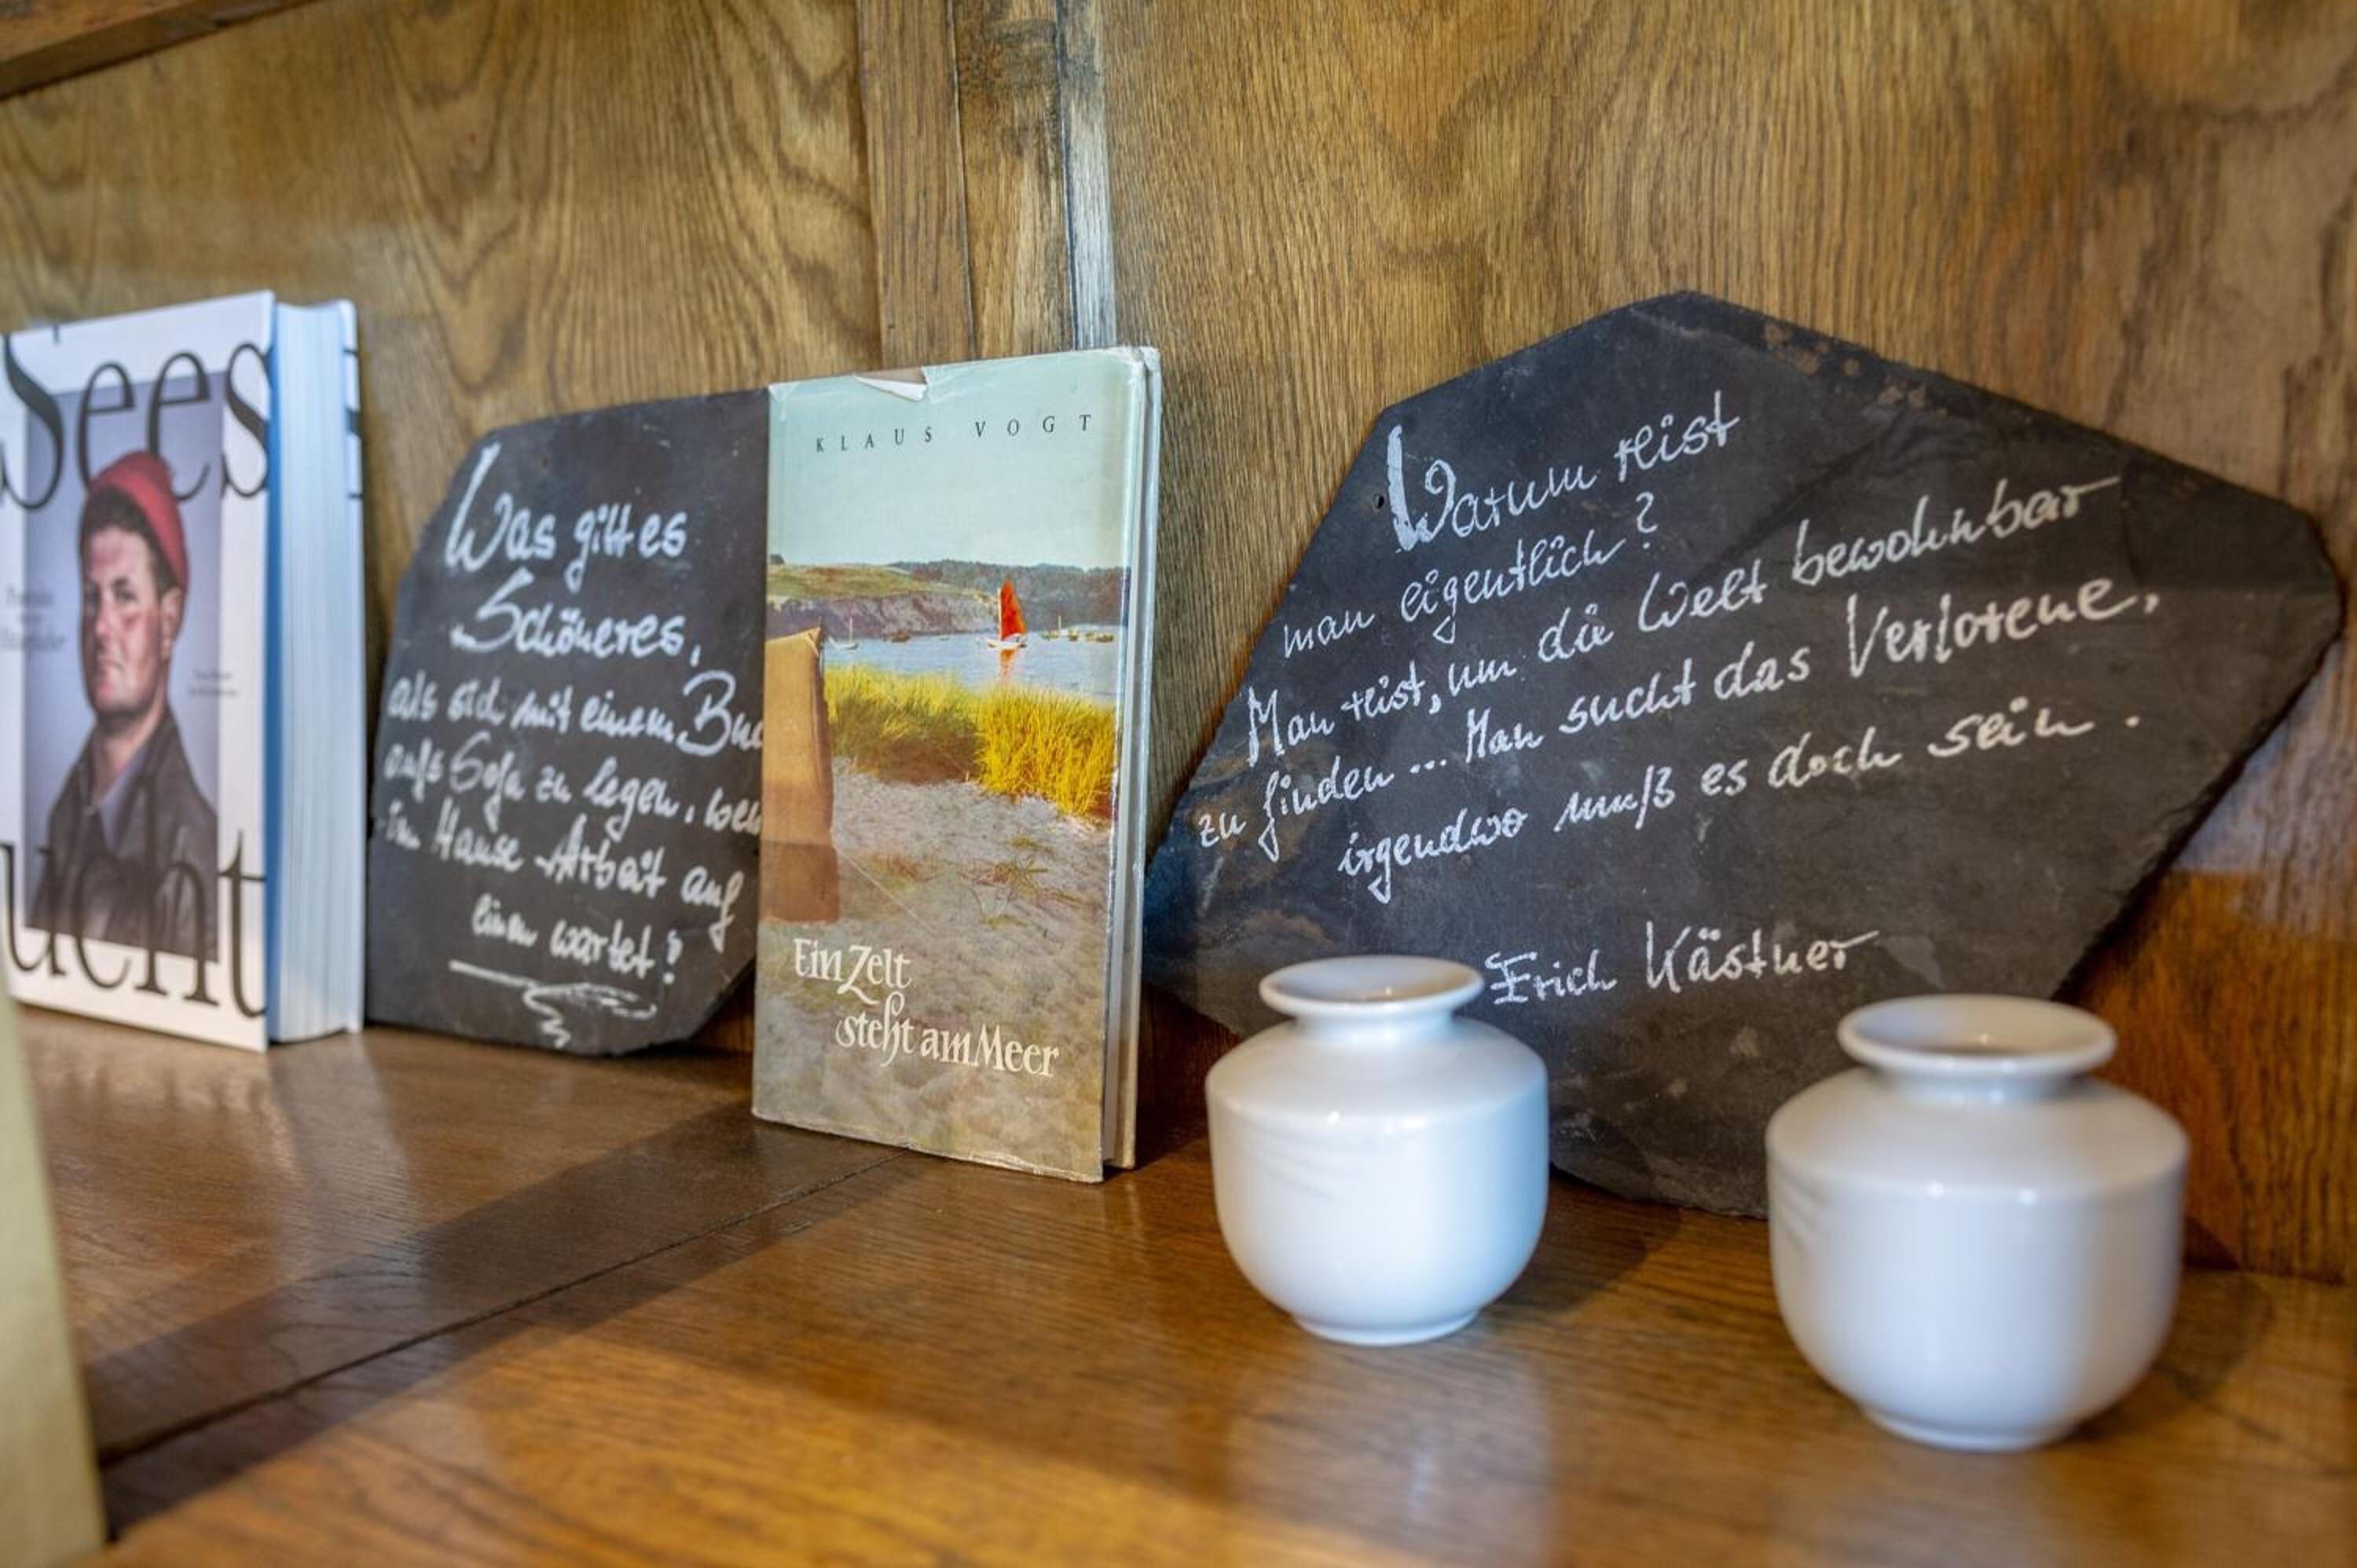 Sees
ucht
Was gibt es
Schöneres,
als sich mit einem Buc
aufs Sofa zu legen, wen
im Hause Arbeit auf
einen wartet?
KLAUS VOGT
Ein Zelt
steht am Meer
Warum reist
man eigentlich?
Man reist, um die Welt bewohnbar
zu finden... Man sucht das Verlorene,
irgendwo muß es doch sein.
Erich Kästner